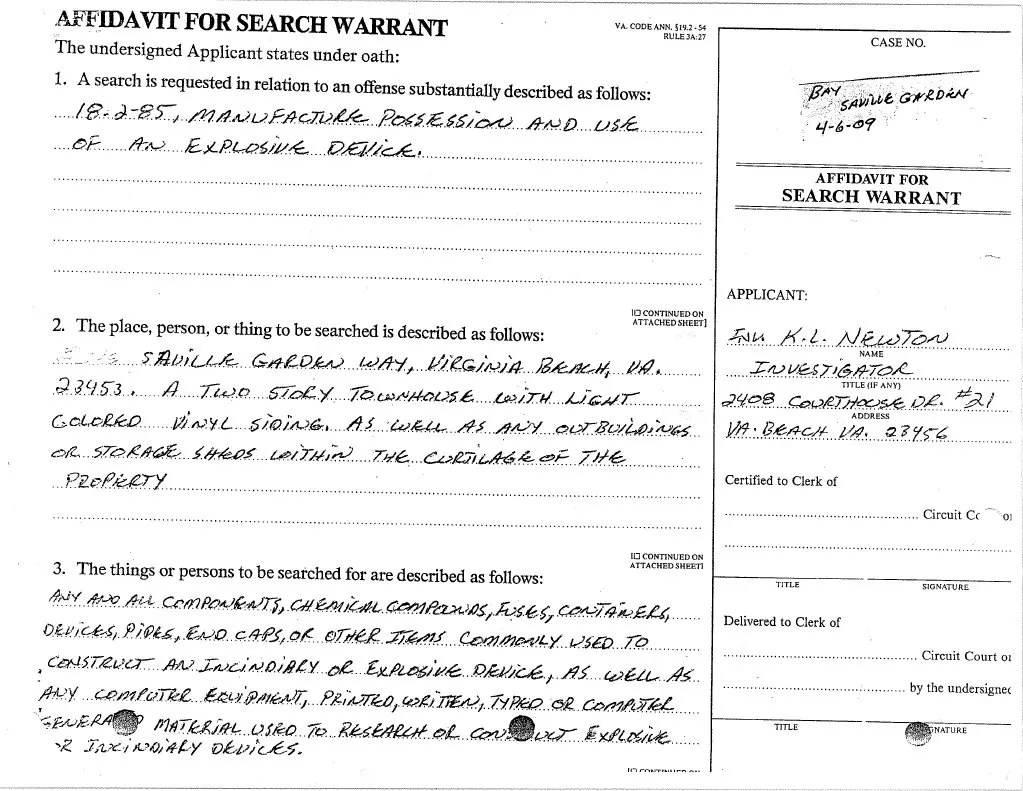 AFFIDAVIT FOR SEARCH WARRANT
VA. CODE ANN. §19.2-54
RULE 3A:27
The undersigned Applicant states under oath:
1. A search is requested in relation to an offense substantially described as follows:
18.2-85, MANUFACTURE POSSESSION AND USE
OF AN EXPLOSIVE DEVICE.
[☐ CONTINUED ON
ATTACHED SHEET]
2. The place, person, or thing to be searched is described as follows:
SAVILLE GARDEN WAY, VIRGINIA BEACH, VA.
23453. A TWO STORY TOWNHOUSE WITH LIGHT
COLORED VINYL SIDING. AS WELL AS ANY OUTBUILDINGS
OR STORAGE SHEDS WITHIN THE CURTILAGE OF THE
PROPERTY
[☐ CONTINUED ON
ATTACHED SHEET]
3. The things or persons to be searched for are described as follows:
ANY AND ALL COMPONENTS, CHEMICAL COMPOUNDS, FUSES, CONTAINERS,
DEVICES, PIPES, END CAPS, OR OTHER ITEMS COMMONLY USED TO
CONSTRUCT AN INCINDIARY OR EXPLOSIVE DEVICE, AS WELL AS
ANY COMPUTER EQUIPMENT, PRINTED, WRITTEN, TYPED OR COMPUTER
MATERIAL USED TO RESEARCH OR EXPLOSIVE
INCINDIARY DEVICES.
[☐ CONTINUED ON
CASE NO.
BAY
SAVILLE GARDEN
4-6-09
AFFIDAVIT FOR
SEARCH WARRANT
APPLICANT:
INV. K.L. NEWTON
NAME
INVESTIGATOR
TITLE (IF ANY)
2408 COURTHOUSE DR. #21
ADDRESS
VA. BEACH VA. 23456
Certified to Clerk of
Circuit
TITLE SIGNATURE
Delivered to Clerk of
Circuit Court
by the undersigned
TITLE SIGNATURE